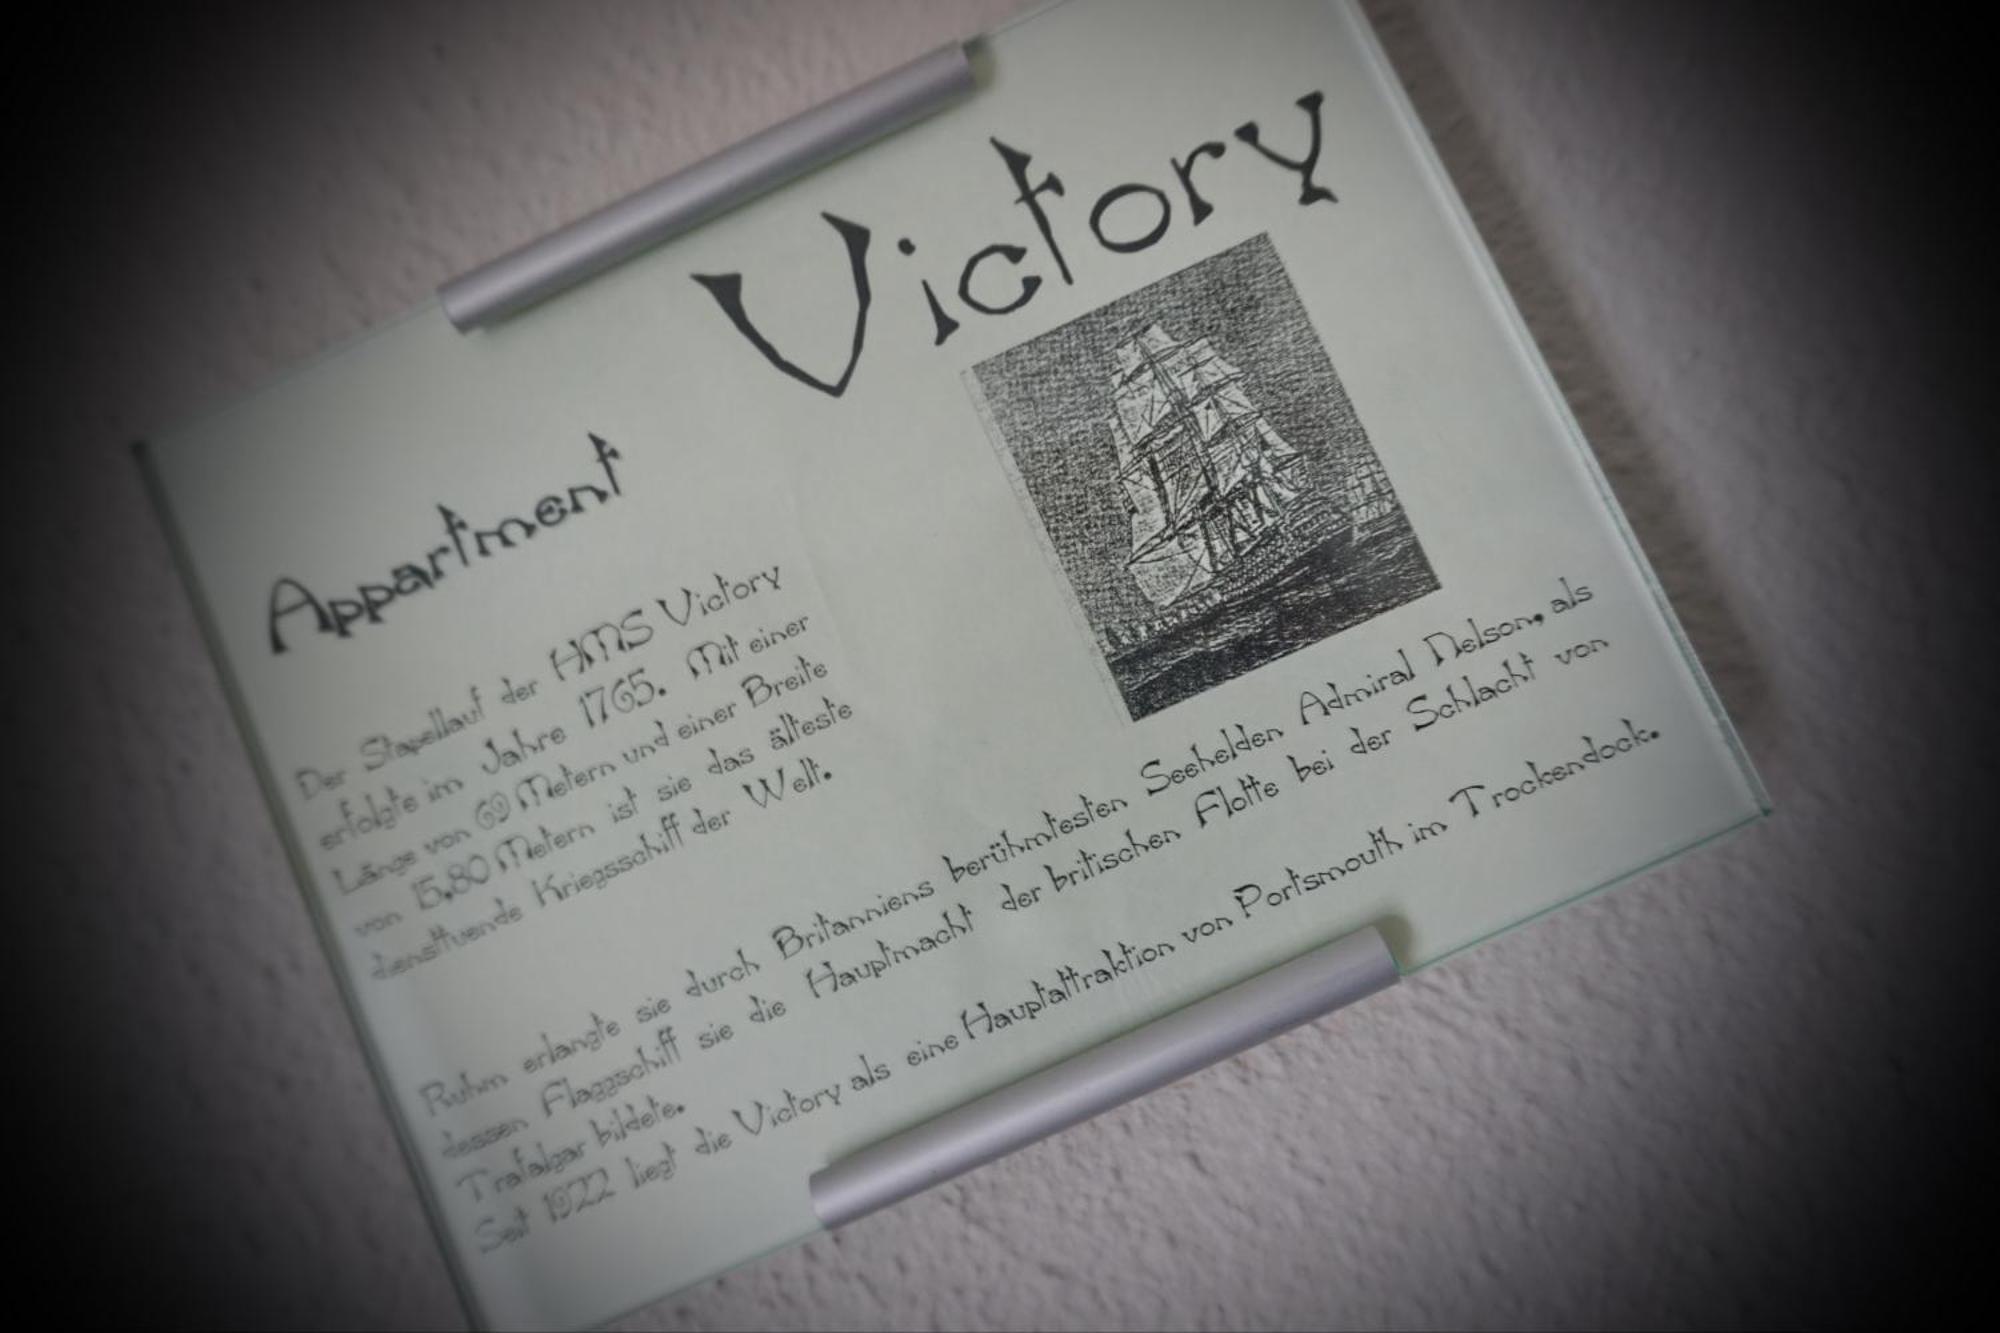 Appartment
Victory
Der Stapellauf der HMS Victory
erfolgte im Jahre 1765. Mit einer
Länge von 69 Metern und einer Breite
von 15,80 Metern ist sie das älteste
diensttuende Kriegsschiff der Welt.
Ruhm erlangte sie durch Britanniens berühmtesten Seehelden Admiral Nelson, als
dessen Flaggschiff sie die Hauptmacht der britischen Flotte bei der Schlacht von
Trafalgar bildete.
Seit 1922 liegt die Victory als eine Hauptattraktion von Portsmouth im Trockendock.